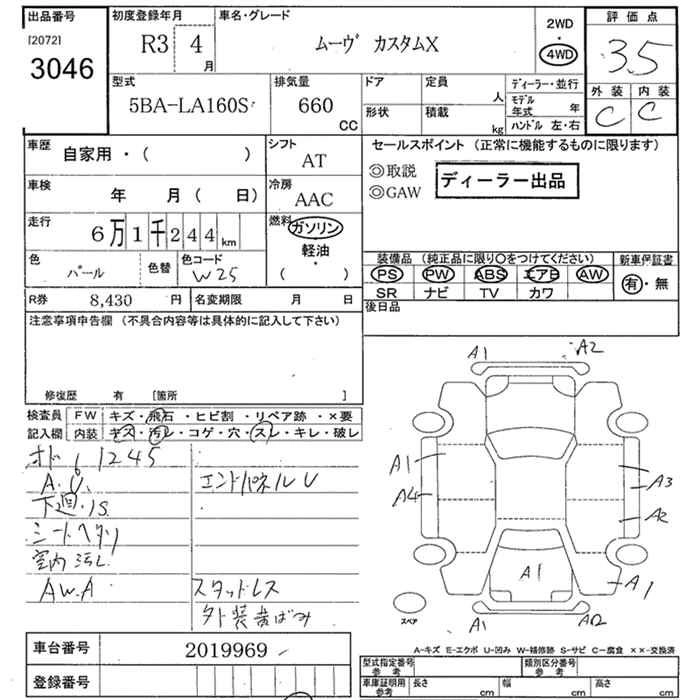 出品番号 初度登録年月 車名・グレード 2WD 評価点
[2072] R3 4月 ムーヴ カスタムX 4WD 3.5
3046
型式 排気量 ドア 定員 人 ディーラー・並行 外装 内装
5BA-LA160S 660 CC 形状 積載 kg モデル年式 年 C C
ハンドル 左・右
車歴 自家用・( ) シフト AT セールスポイント (正常に機能するものに限ります)
◎取説 ディーラー出品
◎GAW
車検 年 月 ( 日) 冷房 AAC
走行 6万1千244km 燃料 ガソリン
軽油・
( )
色 パール 色替 色コード W25
装備品 (純正品に限り○をつけてください) 新車保証書
PS PW ABS エアB AW 有・無
SR ナビ TV カワ
R券 8,430円 名変期限 月 日 後日品
注意事項申告欄 (不具合内容等は具体的に記入して下さい)
修復歴 有 [箇所 ]
検査員 FW キズ・飛石・ヒビ割・リペア跡・×要
記入欄 内装 キズ・汚レ・コゲ・穴・スレ・キレ・破レ
オド 61245
A.U. エンドパネルU
下廻.S
シートヘタリ
室内汚レ
A.W.A スタッドレス
外装黄ばみ
A1 A2
A1 A3
A4 A2
A1 A1
スペア A1 A2
A-キズ E-エクボ U-凹み W-補修跡 S-サビ C-腐食 ××-交換済
車台番号 2019969
登録番号
型式指定番号 参考 類別区分番号 参考
車庫証明用 参考 長さ cm 幅 cm 高さ cm